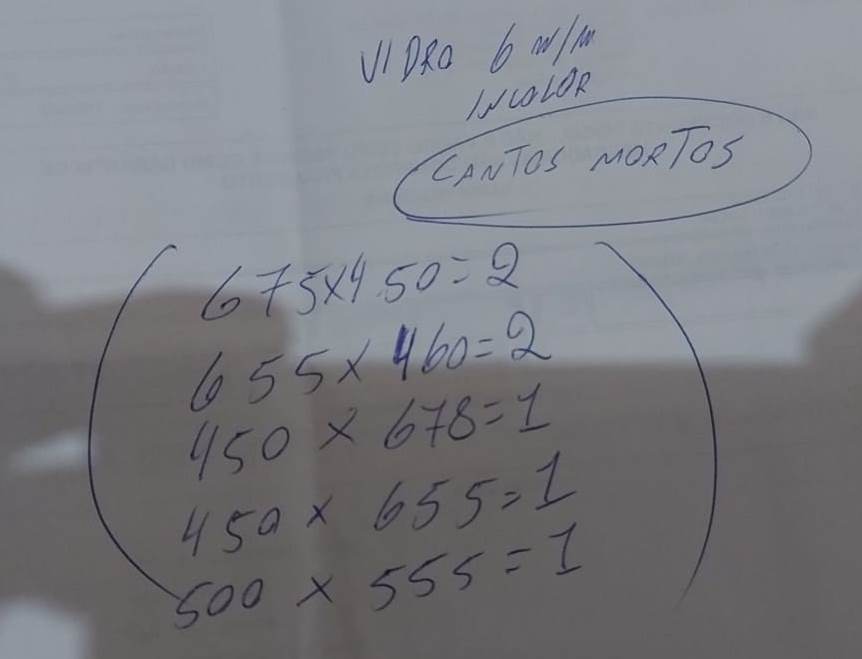 VIDRO 6 m/m
INCOLOR
CANTOS MORTOS
675x450=2
655x460=2
450x678=1
450x655=1
500x555=1